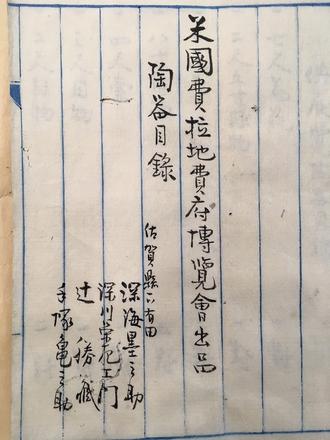 米國費拉地費府博覽會出品
陶器目錄
佐賀縣下有田
深海墨之助
深川榮左エ門
辻勝藏
手塚亀之助